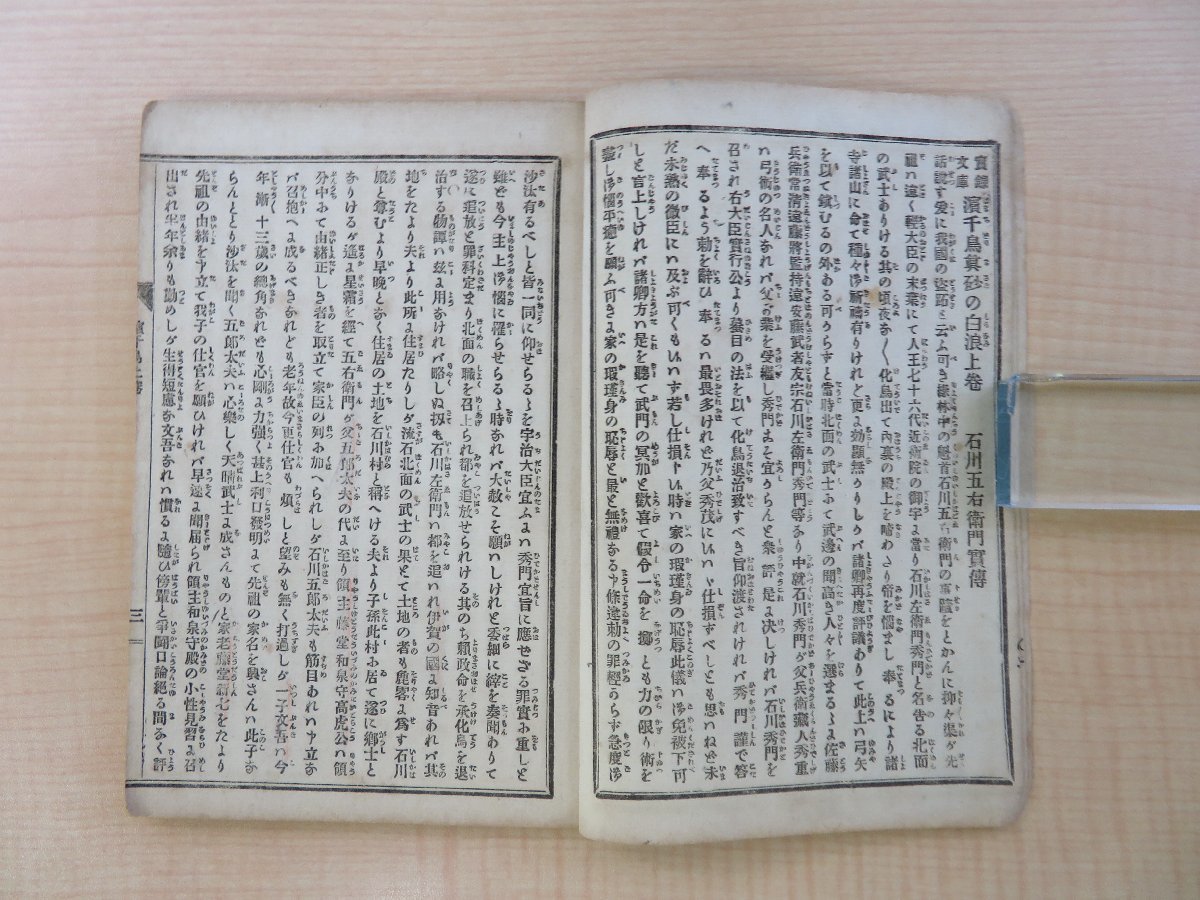 實錄文庫 濱千鳥眞砂の白浪上卷 石川五右衛門實傳
話説す爰に我國の盜跖と云ふ可き綠林中の魁首石川五右衛門の事蹟をとかんに抑々渠が先
祖の遠く輕大臣の末葉にて人王七十六代近衛院の御宇に當り石川左衛門秀門と名告る北面
の武士ありける其の頃夜な〱化鳥出て内裏の殿上を啼わさり帝を惱まし奉るにより諸
寺諸山に命て種々の御祈禱有りけれど更に効顯無かりしかバ諸卿再度評議ありて此上ハ弓矢
を以て鎮むるの外ある可からずと當時北面の武士にて武邊の聞高き人々を選まるゝに佐藤
兵衛常清遠藤將監持遠安藤武者友宗石川左衛門秀門等なり中就石川秀門が父兵衛藏人秀重
ハ弓術の名人なれバ父の業を受繼し秀門こそ宜からんと衆評是に决しけれバ石川秀門を
召され右大臣實行公より蟇目の法を以て化鳥退治致すべき旨仰渡されけれバ秀門謹で答
へ奉るよう勅を辭ひ奉るハ最畏多けれど乃父秀茂にハいハず仕損ずべしとも思ハねど未
だ未熟の微臣に及ぶ可くもいハず若し仕損ずいハ時ハ家の瑕瑾身の恥辱此樣ハ御免被下可
しと言上しけれバ諸卿方ハ是を聽て武門の冥加と歡喜て假令一命を擲つとも力の限り術を
盡し御惱平癒を願ふ可きに家の瑕瑾身の恥辱と最と無禮なる申條違勅の罪輕からず急度御
沙汰有るべしと皆一同に仰せらるゝを宇治大臣宜ふよハ秀門宣旨に應せざる罪實に重しと
雖も今主上御惱に罹らせらるゝ時なれバ大赦こそ願ハしけれと委細に淬を奏聞ありて
遂に追放と罪科定まり北面の職を召上られ都を追放せられける其のち賴政命を承化鳥を退
治する物譚ハ玆に用なけれバ略しぬ扨も石川左衛門ハ都を追ハれ伊賀の國に知音あれバ其
地をたより夫より此所に住居たりしが流石北面の武士の果とて土地の者も鹿畧に爲ず石川
殿と尊むより早晩となく住居の土地を石川村と稱へける夫より子孫此村に居て遂に郷士と
なりけるが遙に星霜を經て五右衛門が父五郎太夫の代に至り領主藤堂和泉守高虎公ハ領
分中にて由緒正しき者を取立て家臣の列に加へられしが石川五郎太夫も筋目あれハ申立な
バ召抱へに成るべきなれども老年故今更仕官も煩しと望みも無く打過しが一子文吾ハ今
年漸十三歳の總角なれども心剛に力強く甚上利口發明にて先祖の家名を興さんハ此子な
らんととり沙汰を聞く五郎太夫ハ心樂しく天晴武士に成さんものと家老藤堂新七をたより
先祖の由緒を申立て我子の仕官を願ひけれバ早速に聞屆られ領主和泉守殿の小性見習に召
出され半年余りも勤めしが生得短慮な文吾なれハ慣るに隨ひ傍輩と爭鬪口論絶る間なく評
三